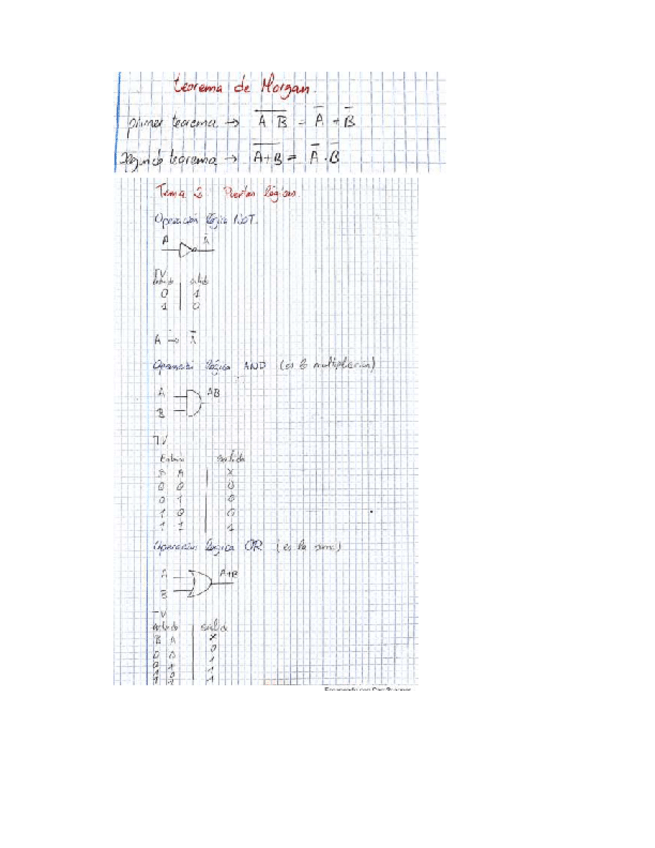 teorema de Morgan.
primer teorema → A̅ ̅B̅ = A̅ + B̅
segundo teorema → A̅+̅B̅ = A̅ · B̅
Tema 2 Puertas lógicas
Operación lógica NOT.
A A̅
TV
entrada salida
0 1
1 0
A → A̅
Operación lógica AND (es la multiplicación)
A AB
B
TV
Entrada Salida
B A X
0 0 0
0 1 0
1 0 0
1 1 1
Operación lógica OR (es la suma)
A A+B
B
TV
entrada salida
B A X
0 0 0
0 1 1
1 0 1
1 1 1
Escaneado con CamScanner